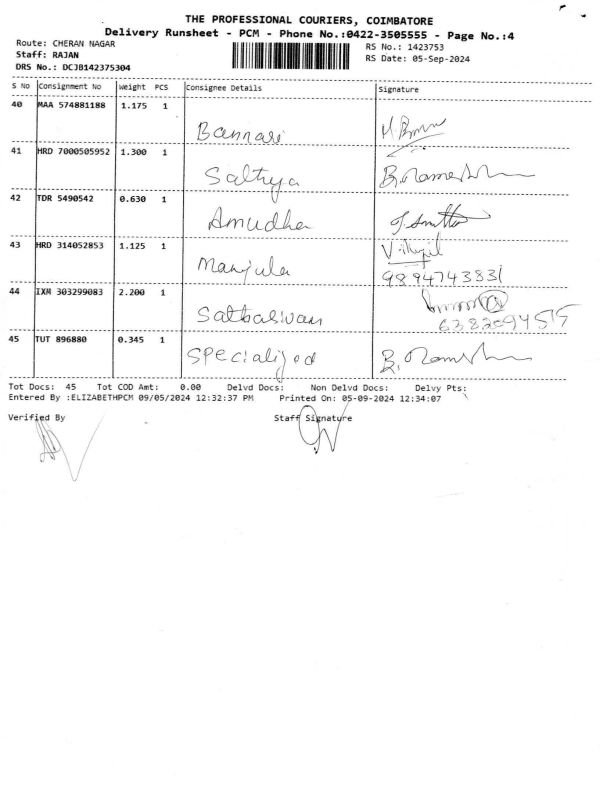 THE PROFESSIONAL COURIERS, COIMBATORE
Delivery Runsheet - PCM - Phone No.:0422-3505555 - Page No.:4
Route: CHERAN NAGAR
Staff: RAJAN
DRS No.: DCJB142375304
RS No.: 1423753
RS Date: 05-Sep-2024
S No Consignment No Weight PCS Consignee Details Signature
40 MAA 574881188 1.175 1 Bannari
41 HRD 7000505952 1.300 1 Sathya B. Ramesh
42 TDR 5490542 0.630 1 Amudha
43 HRD 314052853 1.125 1 Manjula
9894743831
44 IXM 303299083 2.200 1
6382094515
45 TUT 896880 0.345 1 Specialized B. Ramesh
Tot Docs: 45 Tot COD Amt: 0.00 Delvd Docs: Non Delvd Docs: Delvy Pts:
Entered By :ELIZABETHPCM 09/05/2024 12:32:37 PM Printed On: 05-09-2024 12:34:07
Verified By Staff Signature